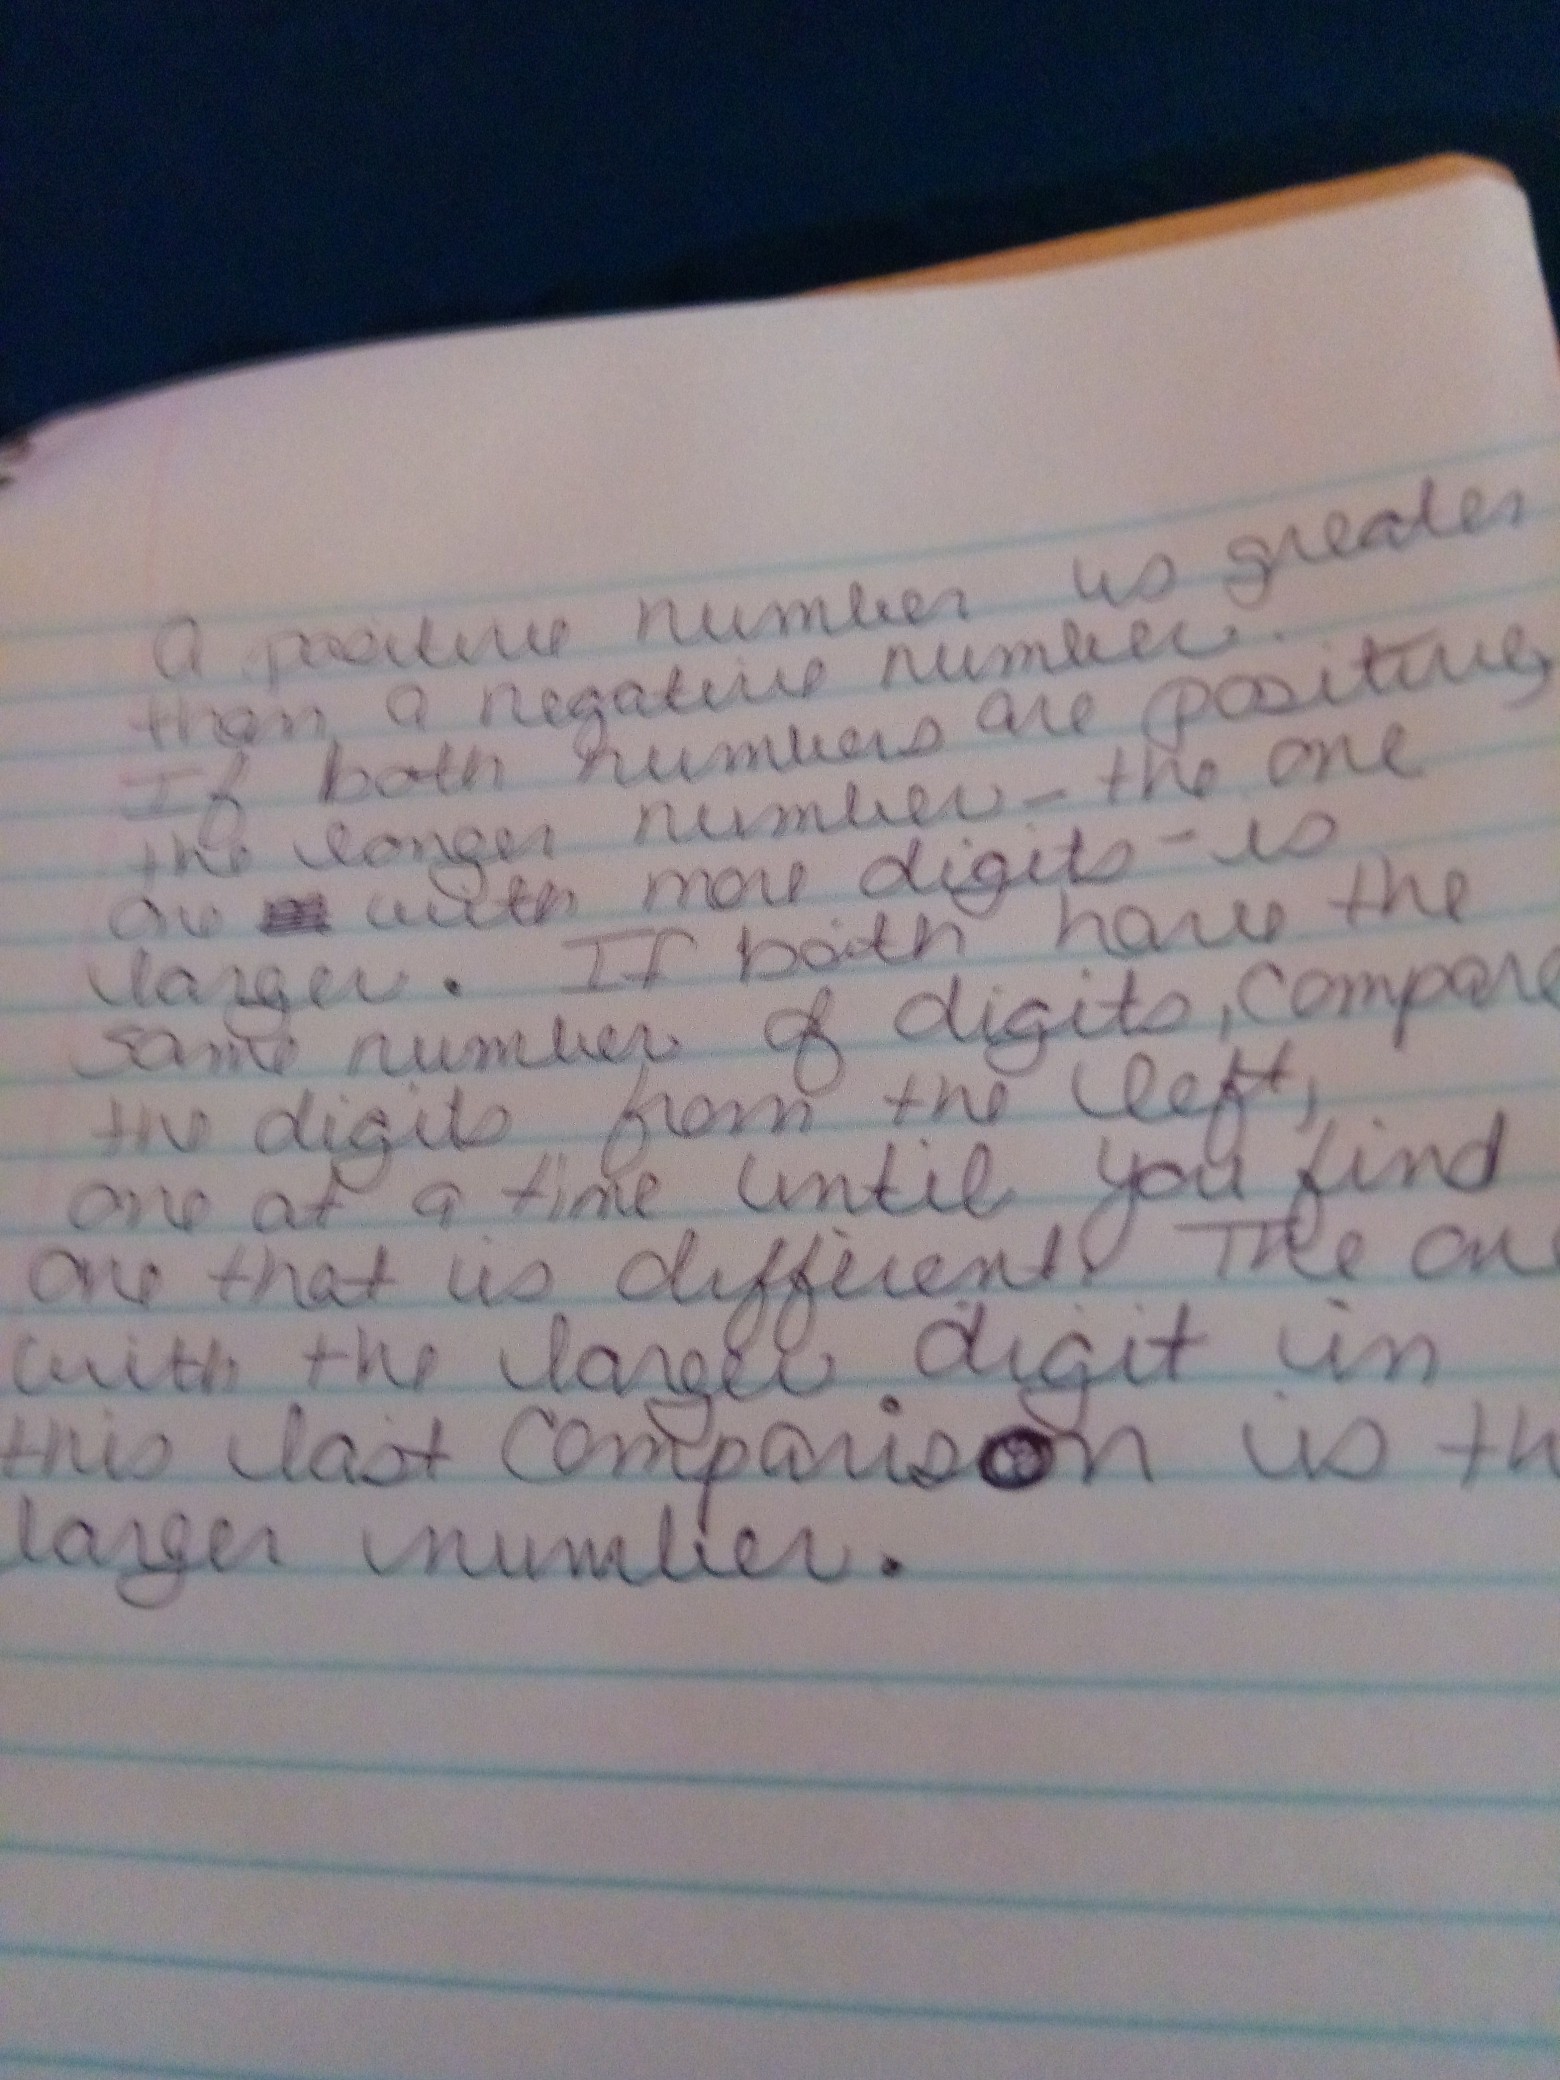 A positive number is greater
than a negative number.
If both numbers are positive,
the longer number - the one
one with more digits - is
larger. If both have the
same number of digits, compare
the digits from the left,
one at a time until you find
one that is different. The one
with the larger digit in
this last comparison is th
larger number.